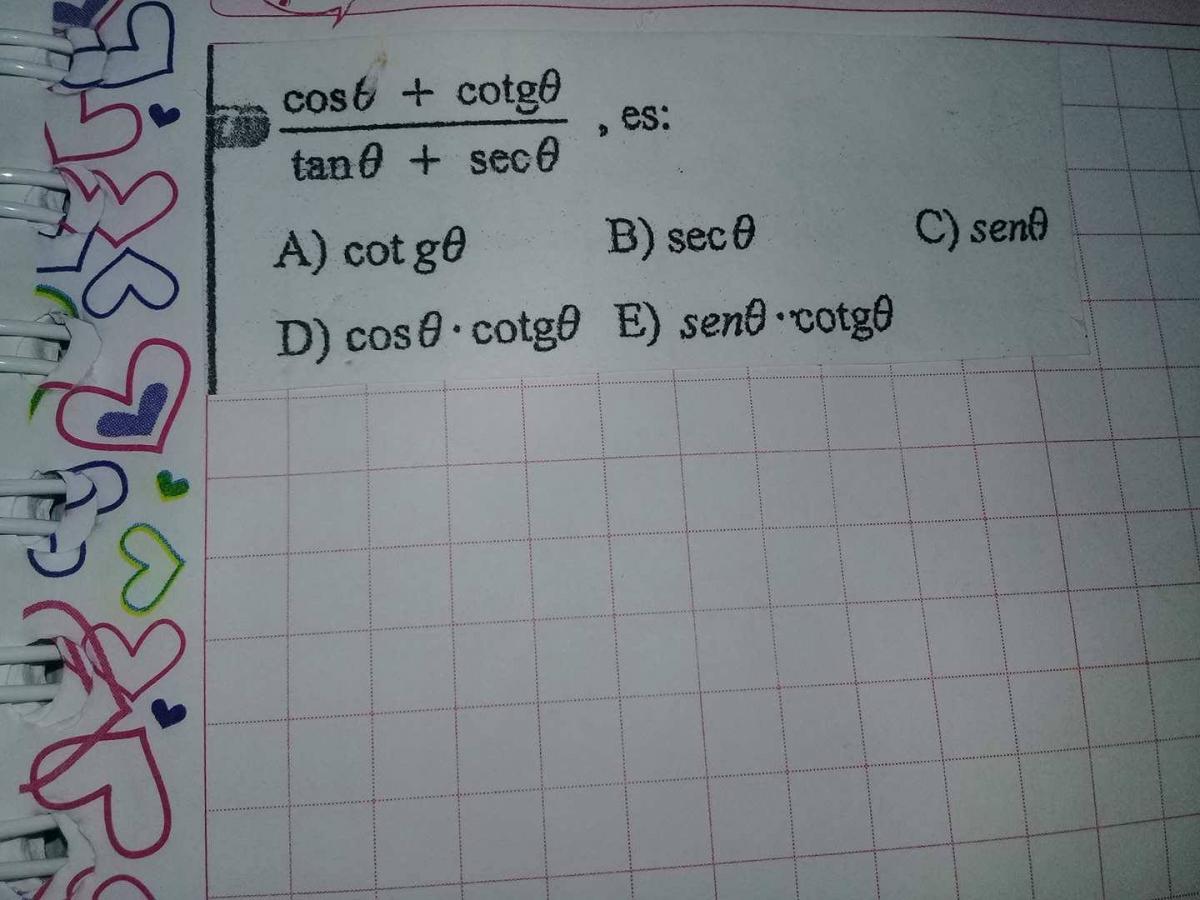 cosθ + cotgθ
, es:
tanθ + secθ
A) cotgθ B) secθ C) senθ
D) cosθ · cotgθ E) senθ · cotgθ